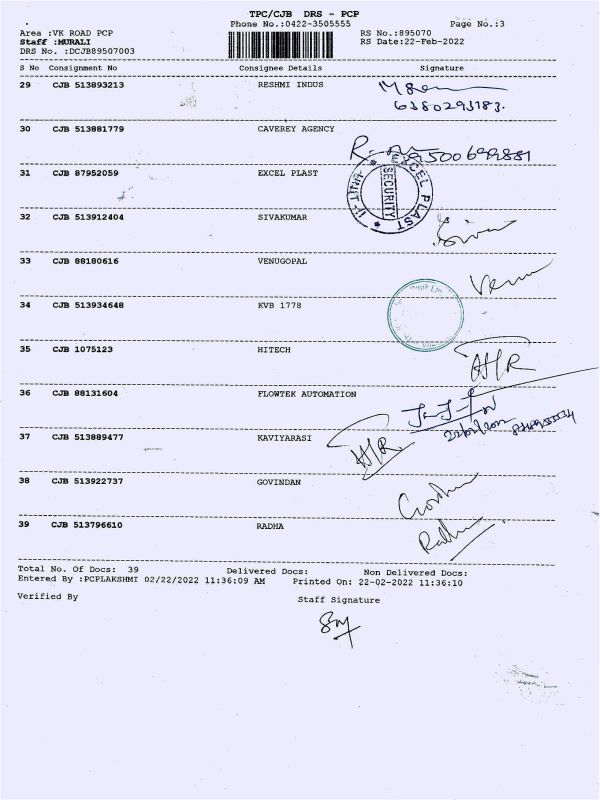 TPC/CJB DRS - PCP
Phone No.:0422-3505555 Page No.:3
Area :VK ROAD PCP RS No.:895070
Staff :MURALI RS Date:22-Feb-2022
DRS No. :DCJB89507003
S No Consignment No Consignee Details Signature
29 CJB 513893213 RESHMI INDUS
6380293183.
30 CJB 513881779 CAVEREY AGENCY
31 CJB 87952059 EXCEL PLAST
EXCEL PLAST
SECURITY
UNIT-II
32 CJB 513912404 SIVAKUMAR
Siva
33 CJB 88180616 VENUGOPAL
Venu
34 CJB 513934648 KVB 1778
35 CJB 1075123 HITECH
36 CJB 88131604 FLOWTEK AUTOMATION
37 CJB 513889477 KAVIYARASI
38 CJB 513922737 GOVINDAN
39 CJB 513796610 RADHA
Radha
Total No. Of Docs: 39 Delivered Docs: Non Delivered Docs:
Entered By :PCPLAKSHMI 02/22/2022 11:36:09 AM Printed On: 22-02-2022 11:36:10
Verified By Staff Signature